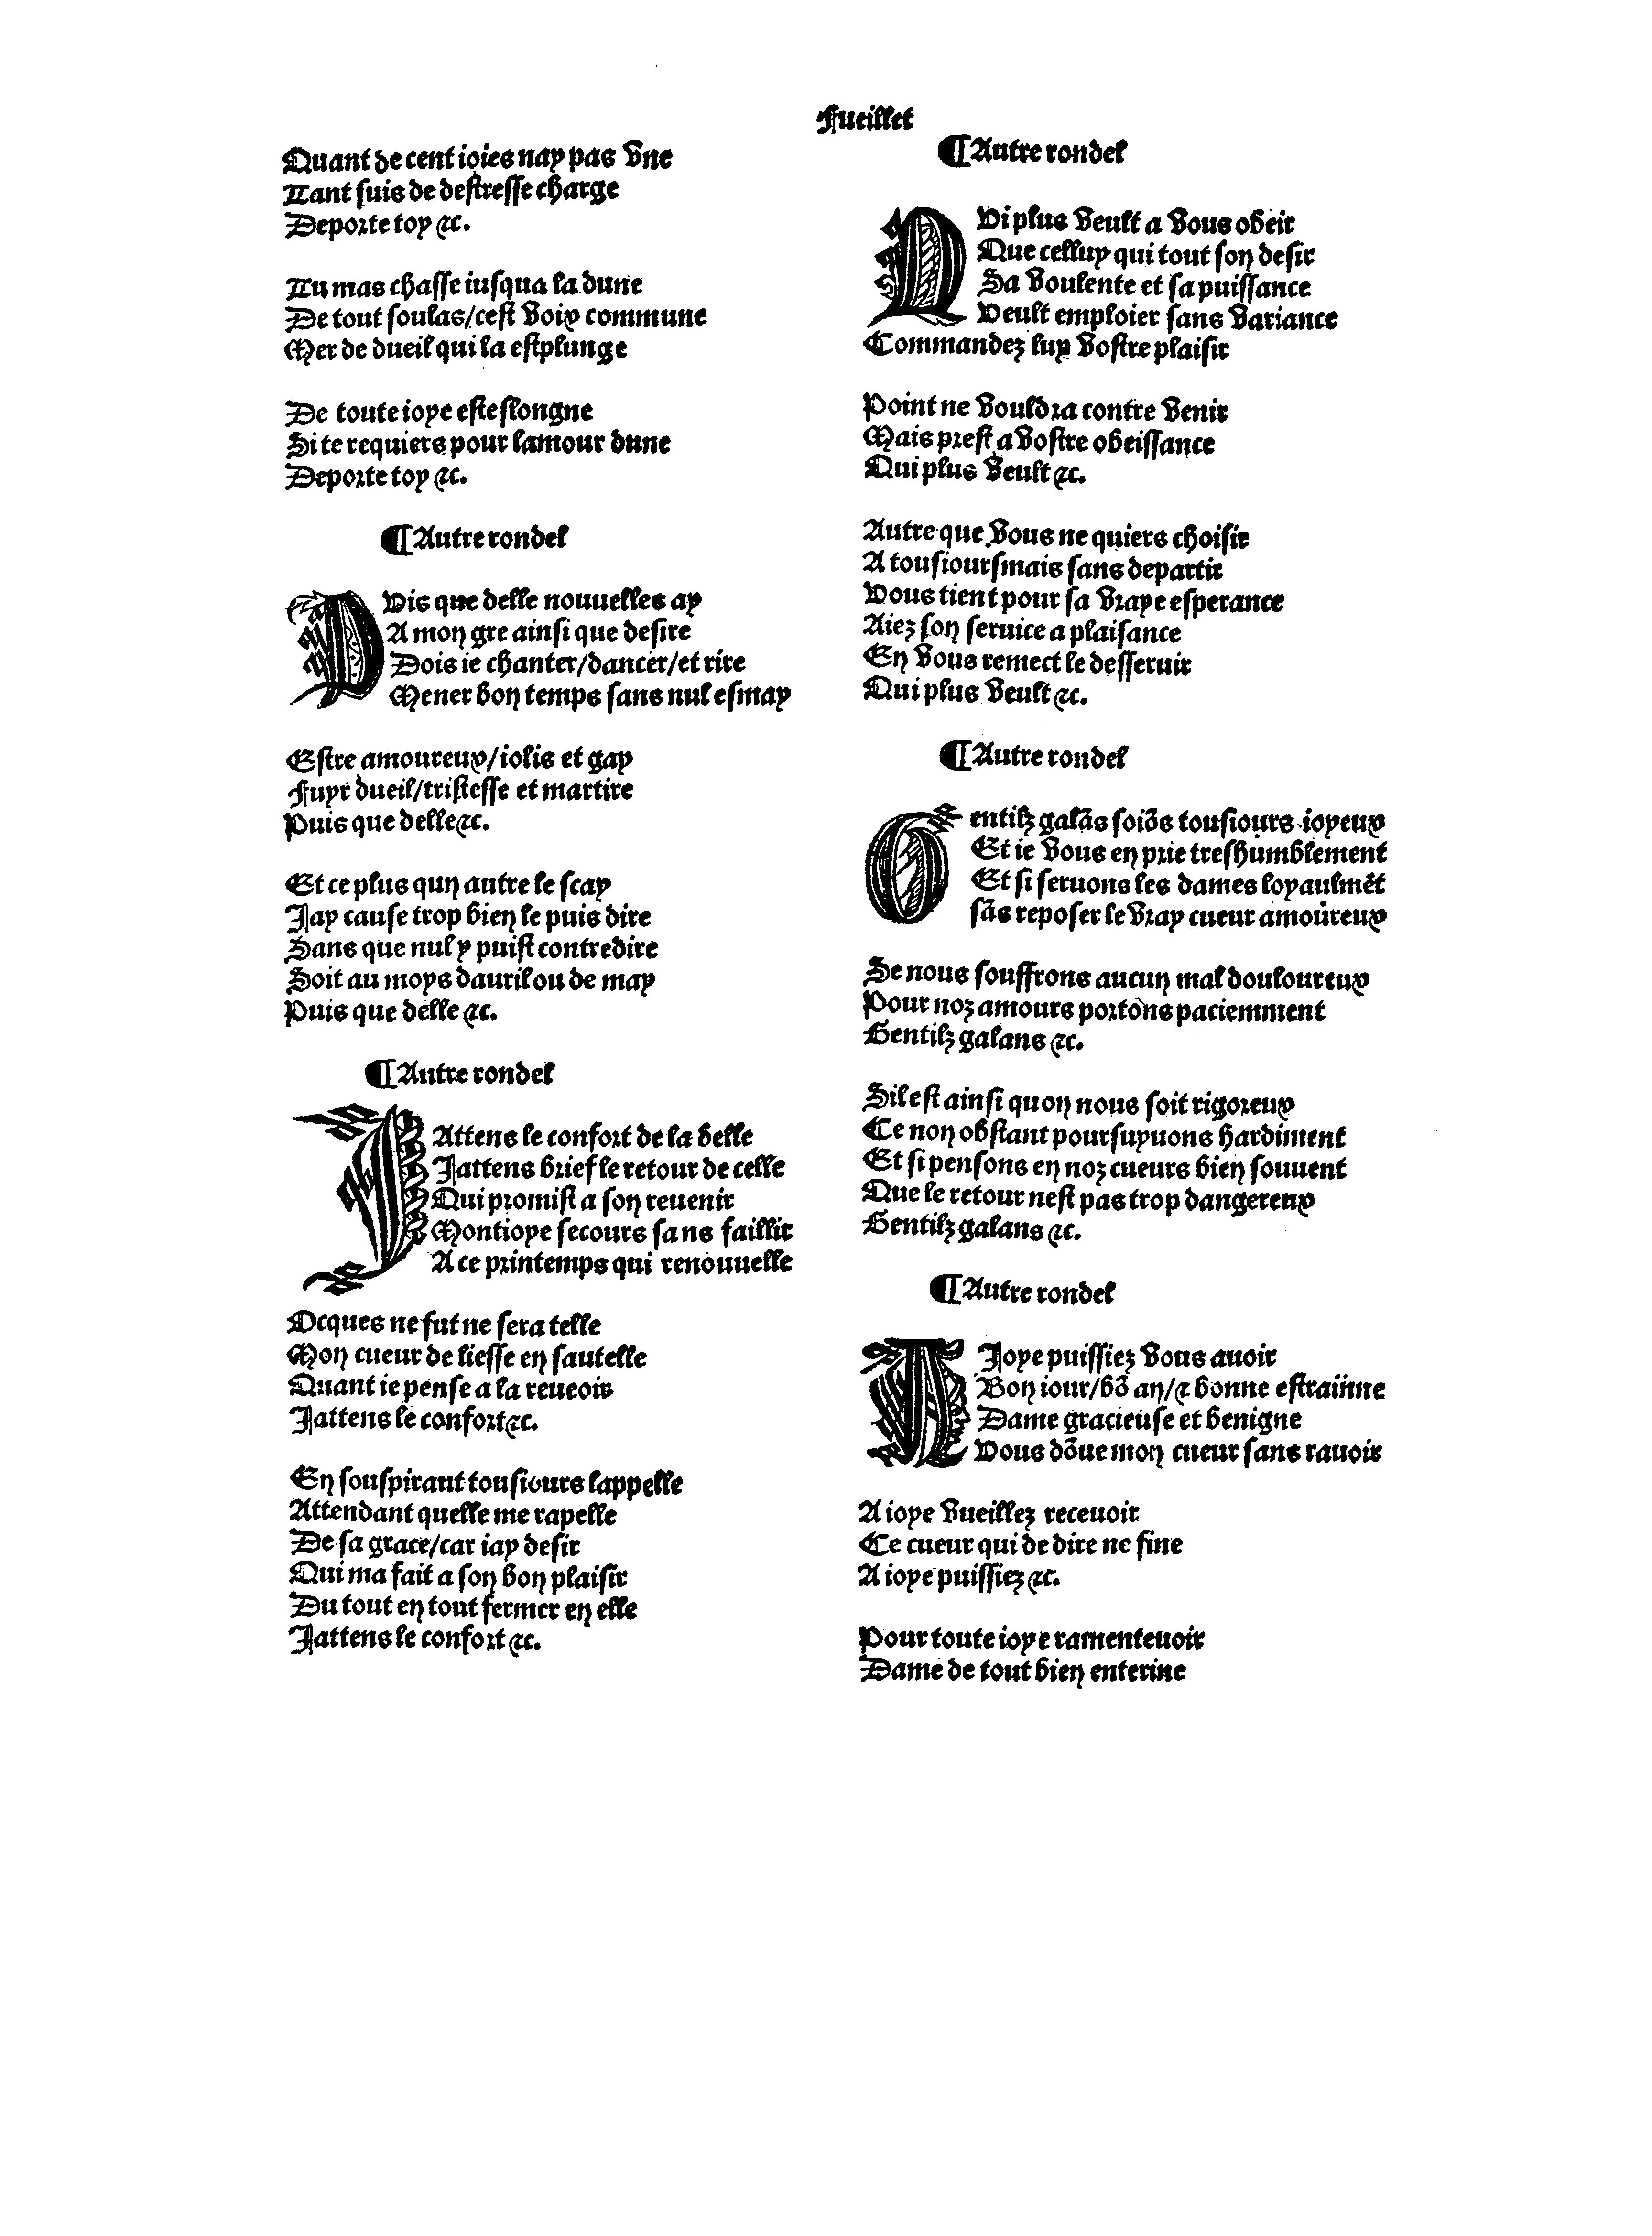 Fueillet
Quant de cent ioies nay pas vne
Tant suis de destresse charge
Deporte toy &c.
Tu mas chasse iusqua la dune
De tout soulas/cest voix commune
Mer de dueil qui la est plunge
De toute ioye esteslongne
Si te requiers pour lamour dune
Deporte toy &c.
¶ Autre rondel
PVis que delle nouuelles ay
A mon gre ainsi que desire
Dois ie chanter/dancer/et rire
Mener bon temps sans nul esmay
Estre amoureux/iolis et gay
Fuyr dueil/tristesse et martire
Puis que delle &c.
Et ce plus qun autre le scay
Jay cause trop bien le puis dire
Sans que nul y puist contredire
Soit au moys dauril ou de may
Puis que delle &c.
¶ Autre rondel
JAttens le confort de la belle
Jattens brief le retour de celle
Qui promist a son reuenir
Montioye secours sans faillir
A ce printemps qui renouuelle
Ocques ne fut ne sera telle
Mon cueur de liesse en sautelle
Quant ie pense a la reueoir
Jattens le confort &c.
En souspirant tousiours lappelle
Attendant quelle me rapelle
De sa grace/car iay desir
Qui ma fait a son bon plaisir
Du tout en tout fermer en elle
Jattens le confort &c.
¶ Autre rondel
QVi plus veult a vous obeir
Que celluy qui tout son desir
Sa voulente et sa puissance
Veult emploier sans variance
Commandez luy vostre plaisir
Point ne vouldra contre venir
Mais prest a vostre obeissance
Qui plus veult &c.
Autre que vous ne quiers choisir
A tousioursmais sans departir
Vous tient pour sa vraye esperance
Aiez son seruice a plaisance
En vous remect le desseruir
Qui plus veult &c.
¶ Autre rondel
Gentilz galãs soiõs tousiours ioyeux
Et ie vous en prie treshumblement
Et si seruons les dames loyaulmẽt
sãs reposer le vray cueur amoureux
Se nous souffrons aucun mal douloureux
Pour noz amours portons paciemment
Gentilz galans &c.
Sil est ainsi quon nous soit rigoreux
Ce non obstant poursuyuons hardiment
Et si pensons en noz cueurs bien souuent
Que le retour nest pas trop dangereux
Gentilz galans &c.
¶ Autre rondel
A Joye puissiez vous auoir
Bon iour/bõ an/& bonne estrainne
Dame gracieuse et benigne
Vous dõue mon cueur sans rauoir
A ioye vueillez receuoir
Ce cueur qui de dire ne fine
A ioye puissiez &c.
Pour toute ioye ramenteuoir
Dame de tout bien enterine